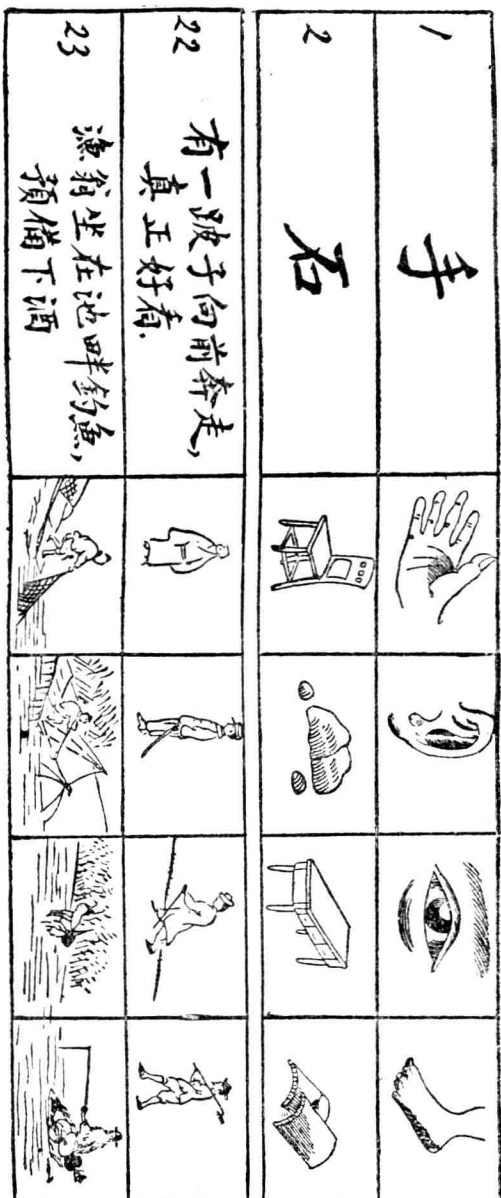 1 手
2 石
22 有一跛子向前奔走,
真正好看.
23 漁翁坐在池畔釣魚,
預備下酒